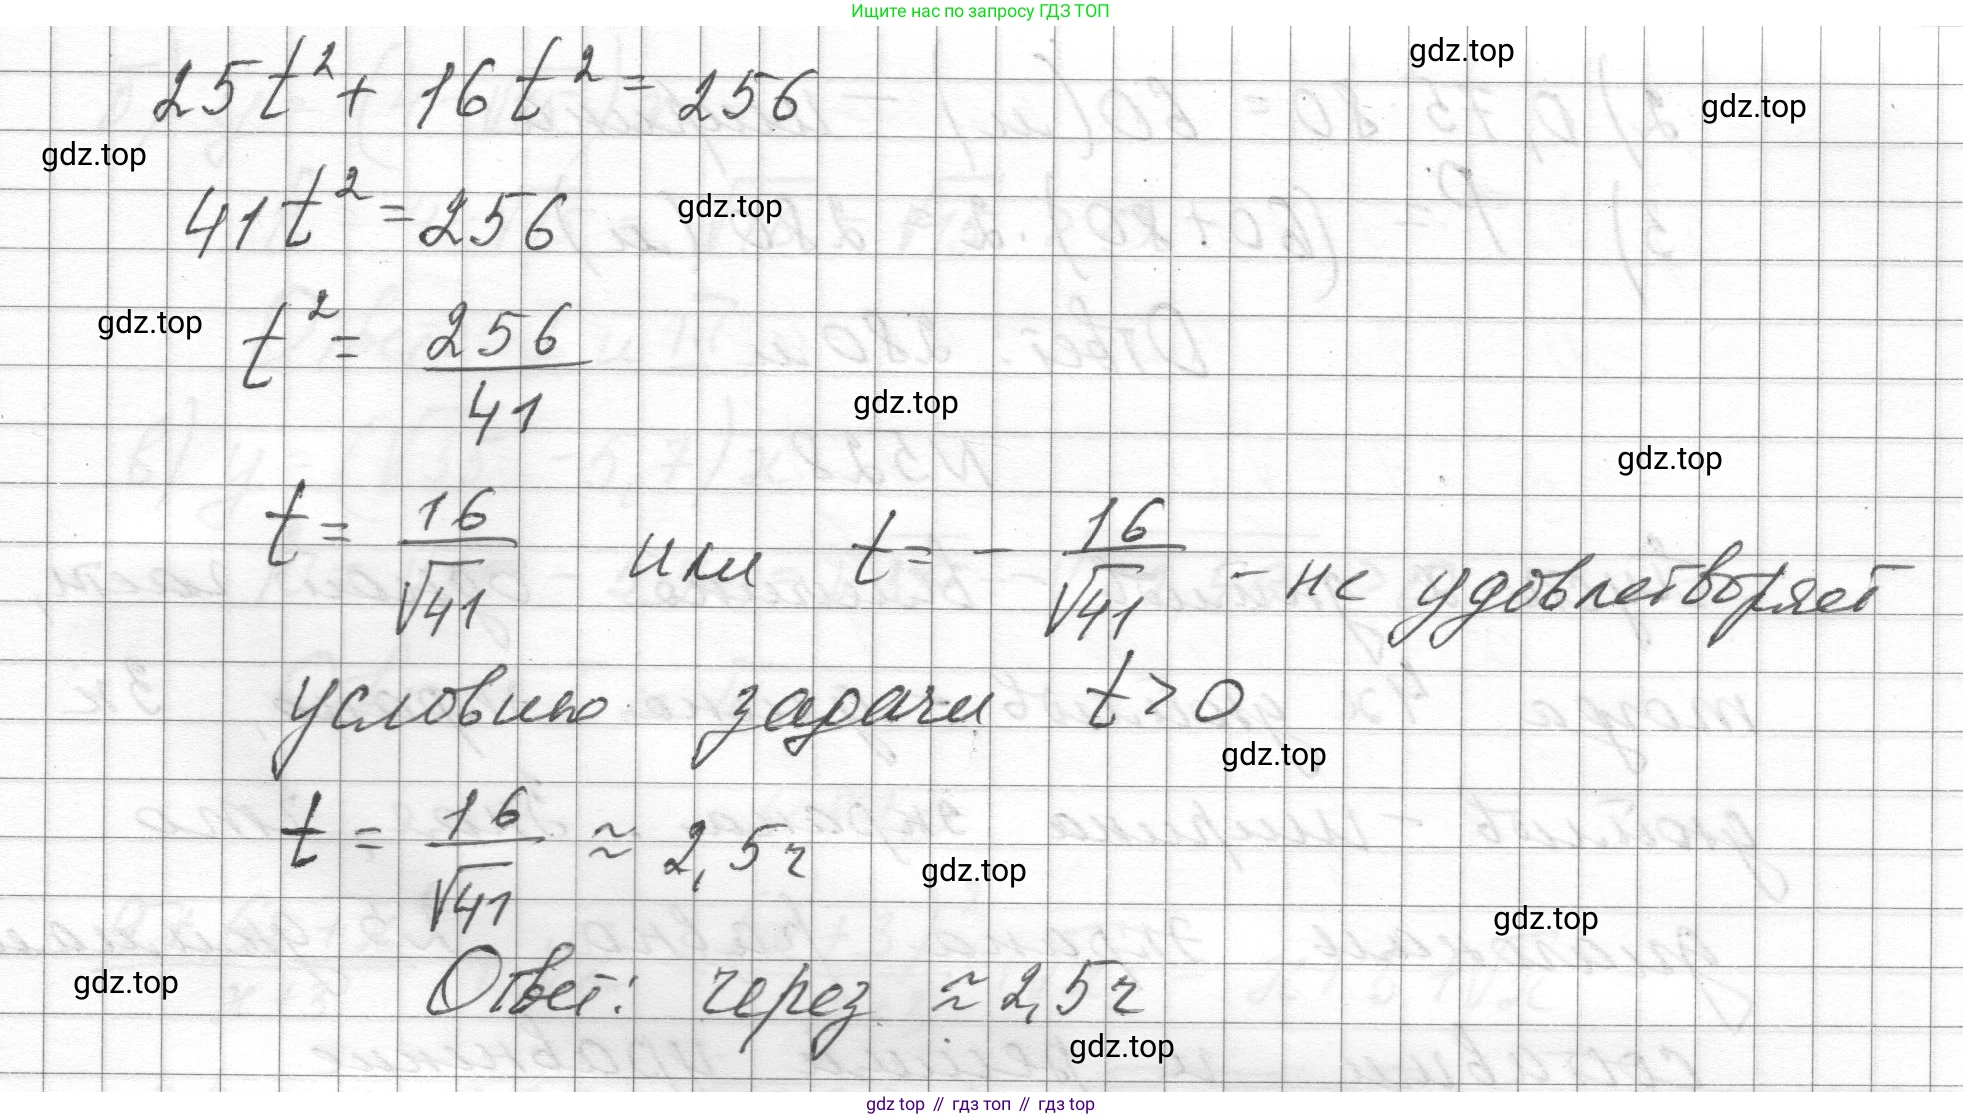 Ищите нас по запросу ГДЗ ТОП
gdz.top
25t² + 16t² = 256
gdz.top
gdz.top
41t² = 256
gdz.top
t² = 256/41
gdz.top
gdz.top
gdz.top
t = 16/√41 или t = - 16/√41 - не удовлетворяет
условию задачи t > 0
gdz.top
t = 16/√41 ≈ 2,5 ч
gdz.top
gdz.top
gdz.top
Ответ: через ≈ 2,5 ч
gdz.top
gdz top // гдз топ // гдз top